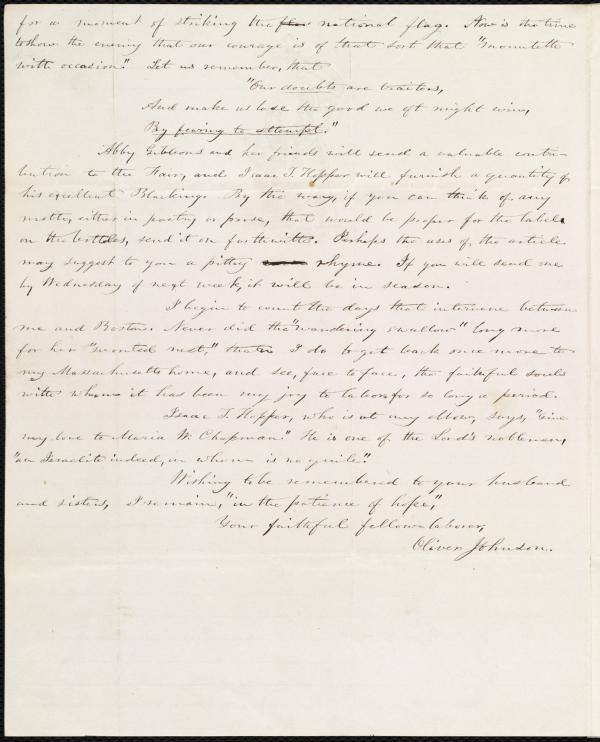 for a moment of striking the national flag. Now is the time
to show the enemy that our courage is of that sort that "mounteth
with occasion." Let us remember, that
"Our doubts are traitors,
And make us lose the good we oft might win,
By fearing to attempt."
Abby Gibbons and her friends will send a valuable contri-
bution to the Fair, and Isaac T. Hopper will furnish a quantity of
his excellent Blacking. By the way, if you can think of any
motto, either in poetry or prose, that would be proper for the labels
on the bottles, send it on forthwith. Perhaps the uses of the article
may suggest to you a pithy rhyme. If you will send me
by Wednesday of next week, it will be in season.
I begin to count the days that intervene between
me and Boston. Never did the "wandering swallow" long more
for her "wonted nest," than I do to get back once more to
my Massachusetts home, and see, face to face, the faithful souls
with whom it has been my joy to labor for so long a period.
Isaac T. Hopper, who is at my elbow, says, "Give
my love to Maria W. Chapman." He is one of the Lord's noblemen,
"an Israelite indeed, in whom is no guile."
Wishing to be remembered to your husband
and sisters, I remain, "in the patience of hope,"
Your faithful fellow-laborer,
Oliver Johnson.